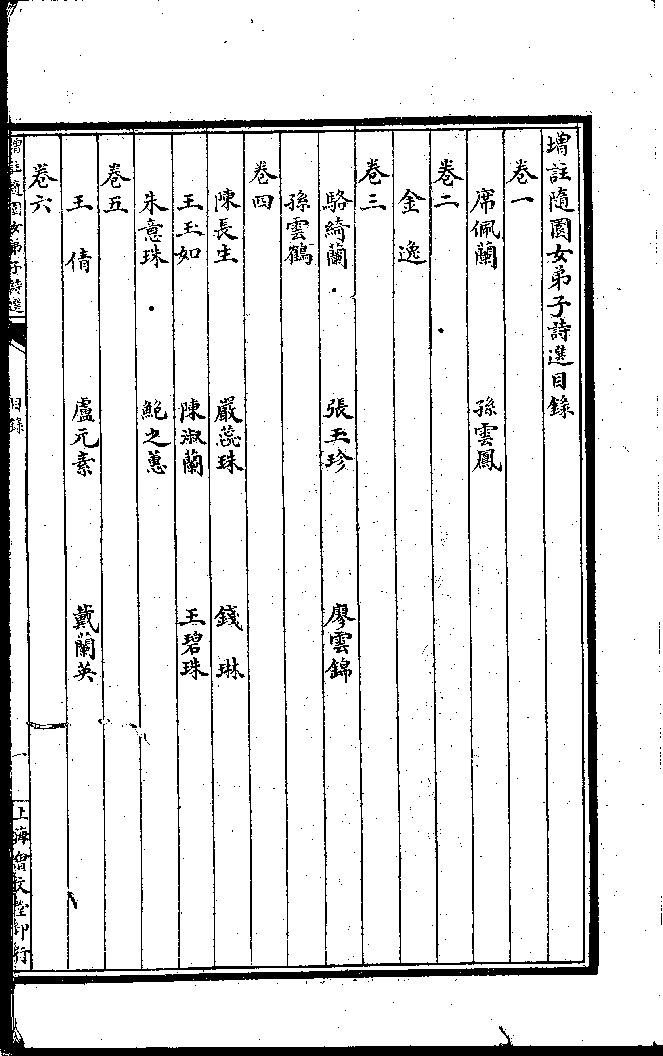 增註隨園女弟子詩選目錄
卷一
席佩蘭 孫雲鳳
卷二
金逸
卷三
駱綺蘭 張玉珍 廖雲錦
孫雲鶴
卷四
陳長生 嚴蕊珠 錢琳
王玉如 陳淑蘭 王碧珠
朱意珠 鮑之蕙
卷五
王倩 盧元素 戴蘭英
卷六
增註隨園女弟子詩選 目錄 一 上海會文堂印行